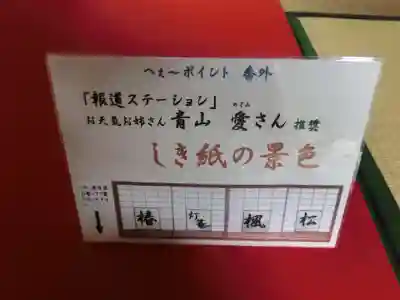 へぇ〜ポイント 番外
「報道ステーション」
お天気お姉さん 青山 愛さん 推奨
めぐみ
しき紙の景色
椿 灯篭 楓 松